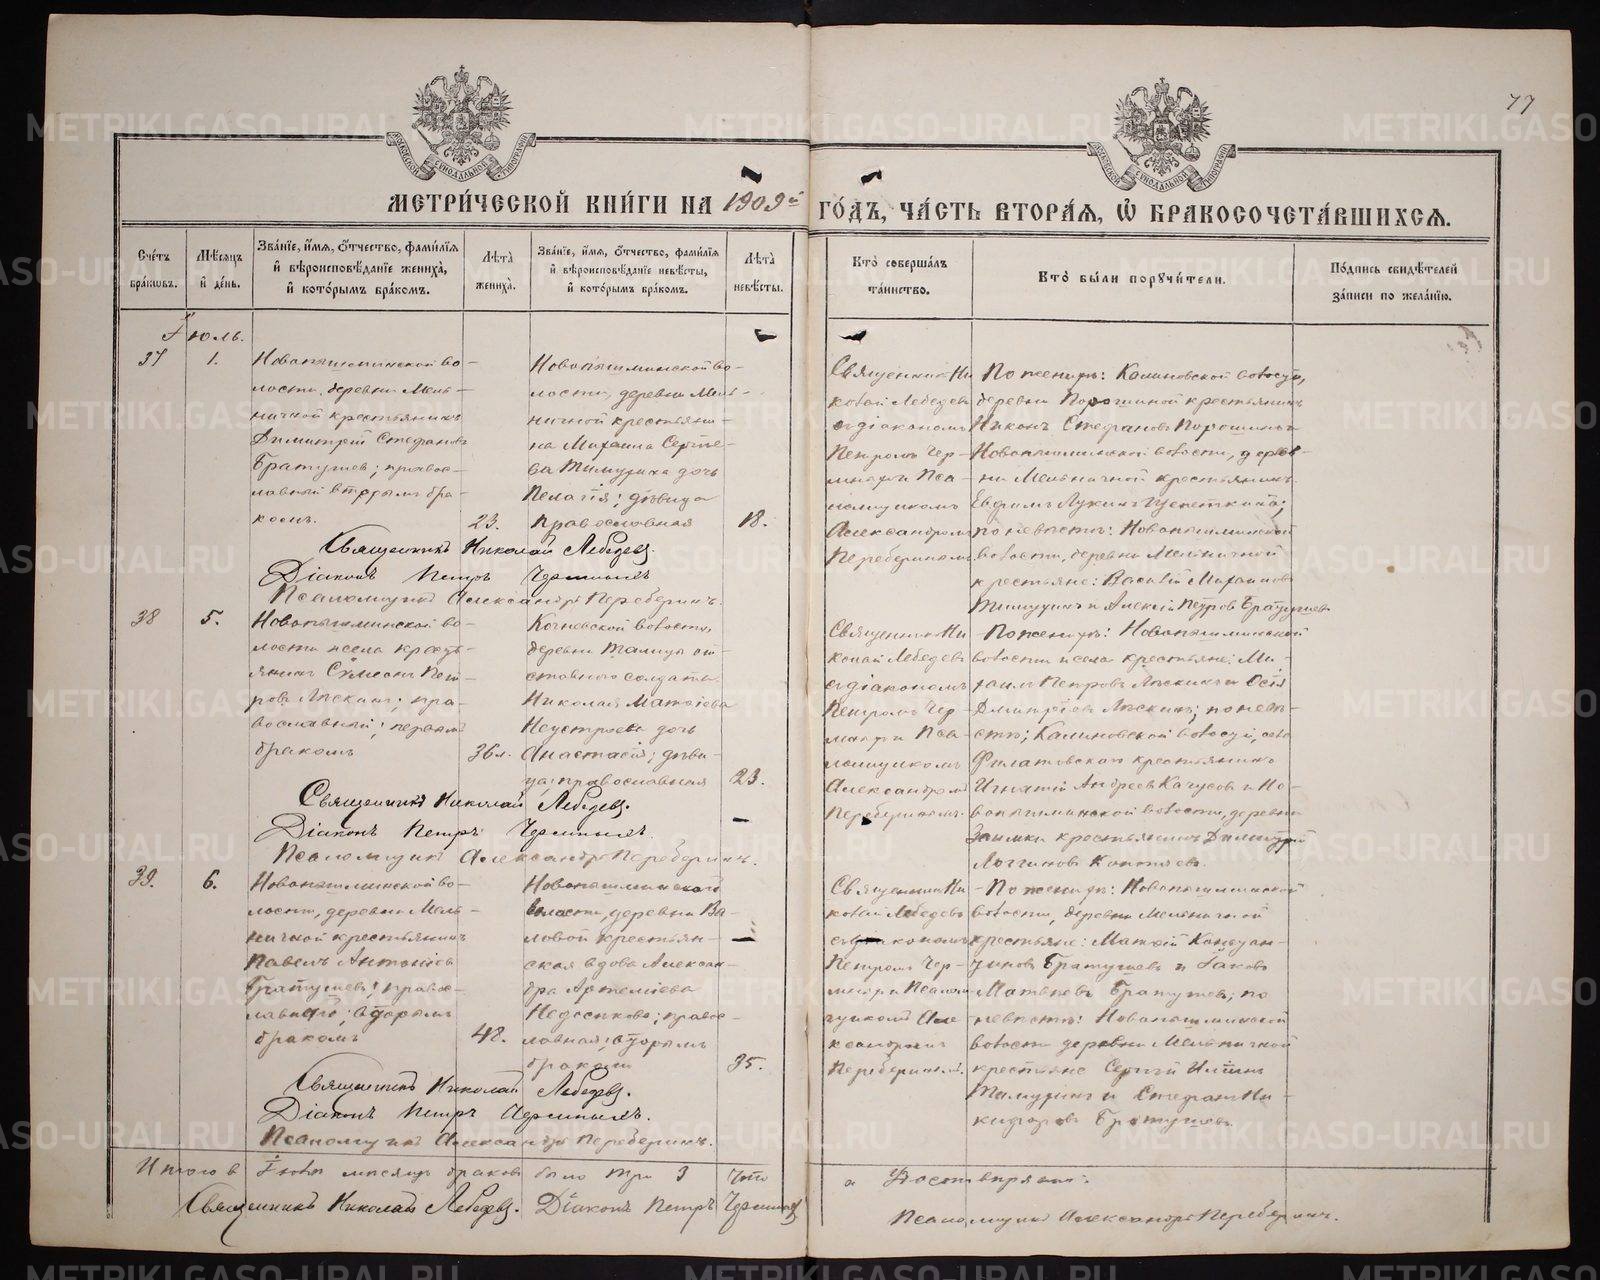 77
МЕТРИ́ЧЕСКОЙ КНИ́ГИ НА 1909й ГО́ДЪ, ЧА́СТЬ ВТОРА́Я, Ѽ БРАКОСОЧЕТА́ВШИХСЯ.
Сче́тъ бра́кѡвъ.
Мѣ́сяцъ и҆ де́нь.
Зва́нїе, и҆́мя, ѻ҆́тчество, фами́лїя и҆ вѣроисповѣ́данїе жениха̀, и҆ кото́рымъ бра́комъ.
Лѣ́та жениха̀.
Зва́нїе, и҆́мя, ѻ҆́тчество, фами́лїя и҆ вѣроисповѣ́данїе невѣ́сты, и҆ кото́рымъ бра́комъ.
Лѣ́та невѣ́сты.
Кто̀ соверша́лъ та́инство.
Кто̀ бы́ли порꙋчи́тели.
По́дпись свидѣ́телей за́писи по жела́нїю.
Іюль.
37
1.
Новопышминской во-
лости, деревни Мель-
ничной крестьянинъ
Димитрій Стефановъ
Братушев; правос-
лавный вторымъ бра-
комъ.
23.
Новопышминской во-
лости, деревни Мель-
ничной крестьяни-
на Михаила Сергѣе-
ва дочь
Пелагія; дѣвица
православная
18.
Священник Ни
колай Лебедевъ
с діакономъ
Петромъ Чер-
и Пса-
ломщикомъ
Александромъ
Перебериным.
По женихѣ: Калиновской волости,
деревни Порошиной крестьянинъ
Никонъ Стефановъ Порошинъ
Новопышминской волости, дерев-
ни Мельничной крестьянинъ
Лукинъ
по невѣстѣ: Новопышминской
волости, деревни Мельничной
крестьяне: Василій Михаиловъ
и Алексій Петров Братушев
Священникъ Николай Лебедевъ.
Діаконъ Петръ
Псаломщикъ Александръ Переберинъ.
38
5.
Новопышминской во-
лости и села кресть-
янинъ Сѵмеонъ Пет-
ровъ Ляскинъ; пра-
вославный; первымъ
бракомъ
36л.
волости,
деревни Талицы от-
ставного солдата
Николая Матѳіева
Неустроева дочь
Анастасія; дѣви-
ца; православная
23.
Священник Ни
колай Лебедевъ
с діакономъ
Петромъ Чер-
и Пса-
ломщикомъ
Александромъ
Переберинымъ.
По женихѣ: Новопышминской
волости и села крестьяне: Ми-
хаилъ Петровъ Ляскинъ и Осія
Дмитріевъ Ляскинъ; по невѣ-
стѣ; Калиновской волости, села
Филатовскаго крестьянинъ
Игнатій Андреевъ Качусовъ и Но-
вопышминской волости, деревни
Заимки крестьянинъ Димитрій
Логгиновъ
Священникъ Николай Лебедевъ.
Діаконъ Петръ
Псаломщикъ Александръ Переберинъ.
39.
6.
Новопышминской во-
лости, деревни Мель-
ничной крестьянинъ
Павелъ Антоніевъ
Братушев; правос-
лавный; вторымъ
бракомъ
48.
Новопышминской
волости, деревни Ва-
ловой крестьян-
ская вдова Алексан-
дра Артеміева
Недоспкова; правос-
лавная; вторымъ
бракомъ
35.
Священник Ни
колай Лебедевъ
с діакономъ
Петромъ Чер-
и Псалом
щикомъ Але
ксандромъ
Перебериным.
По женихѣ: Новопышминской
волости, деревни Мельничной
крестьяне: Матѳій
Братушевъ и Іаковъ
Матвѣевъ Братушев; по
невѣстѣ: Новопышминской
волости деревни Мельничной
крестьяне Сергій Ильинъ
и Стефанъ Ни-
кифоровъ Братушевъ.
Священникъ Николай Лебедевъ.
Діаконъ Петръ
Псаломщикъ Александръ Переберинъ.
Итого в Іюлѣ мѣсяцѣ браковъ было три 3 Что
Священникъ Николай Лебедевъ. Діаконъ Петръ
Псаломщикъ Александръ Переберинъ.
METRIKI.GASO-URAL.RU